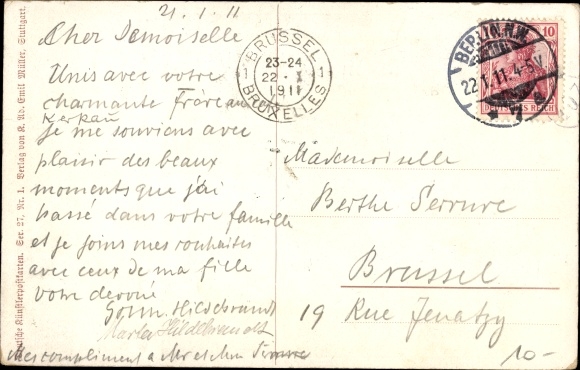 21.1.11
Cher Demoiselle
Unis avec votre
charmante Frère au
Kerkau
je me souviens avec
plaisir des beaux
moments que j'ai
passé dans votre famille
et je joins mes souhaites
avec ceux de ma fille
votre devoué
Hildebrandt
Marta Hildebrandt
Mes compliment a Mr et chm Serrure
BRÜSSEL
1 23-24 1
22.X
1911
BRUXELLES
BERLIN N.W.
22.1.11.4-5V.
* 7
10
DEUTSCHES REICH
Mademoiselle
Berthe Serrure
Brüssel
19 Rue Jenatzy
10-
Deutsche Künstlerpostkarten. Ser. 27, Nr. 1. Verlag von K. Ad. Emil Müller, Stuttgart.